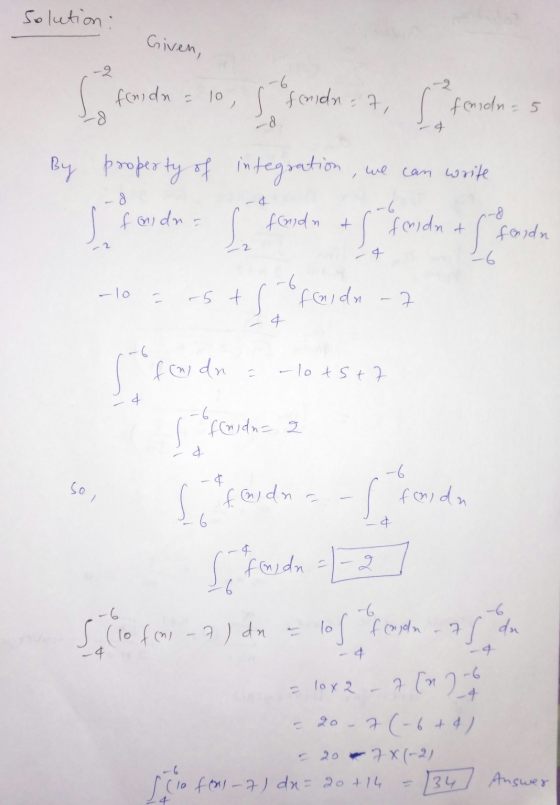 Solution:
Given,
∫_{-8}^{-2} f(x)dx = 10, ∫_{-8}^{-6} f(x)dx = 7, ∫_{-4}^{-2} f(x)dx = 5
By property of integration, we can write
∫_{-2}^{-8} f(x)dx = ∫_{-2}^{-4} f(x)dx + ∫_{-4}^{-6} f(x)dx + ∫_{-6}^{-8} f(x)dx
-10 = -5 + ∫_{-4}^{-6} f(x)dx - 7
∫_{-4}^{-6} f(x)dx = -10 + 5 + 7
∫_{-4}^{-6} f(x)dx = 2
So, ∫_{-6}^{-4} f(x)dx = - ∫_{-4}^{-6} f(x)dx
∫_{-6}^{-4} f(x)dx = -2
∫_{-4}^{-6} (10 f(x) - 7) dx = 10 ∫_{-4}^{-6} f(x)dx - 7 ∫_{-4}^{-6} dx
= 10 × 2 - 7 [x]_{-4}^{-6}
= 20 - 7 (-6 + 4)
= 20 - 7 × (-2)
∫_{-4}^{-6} (10 f(x) - 7) dx = 20 + 14 = 34 Answer